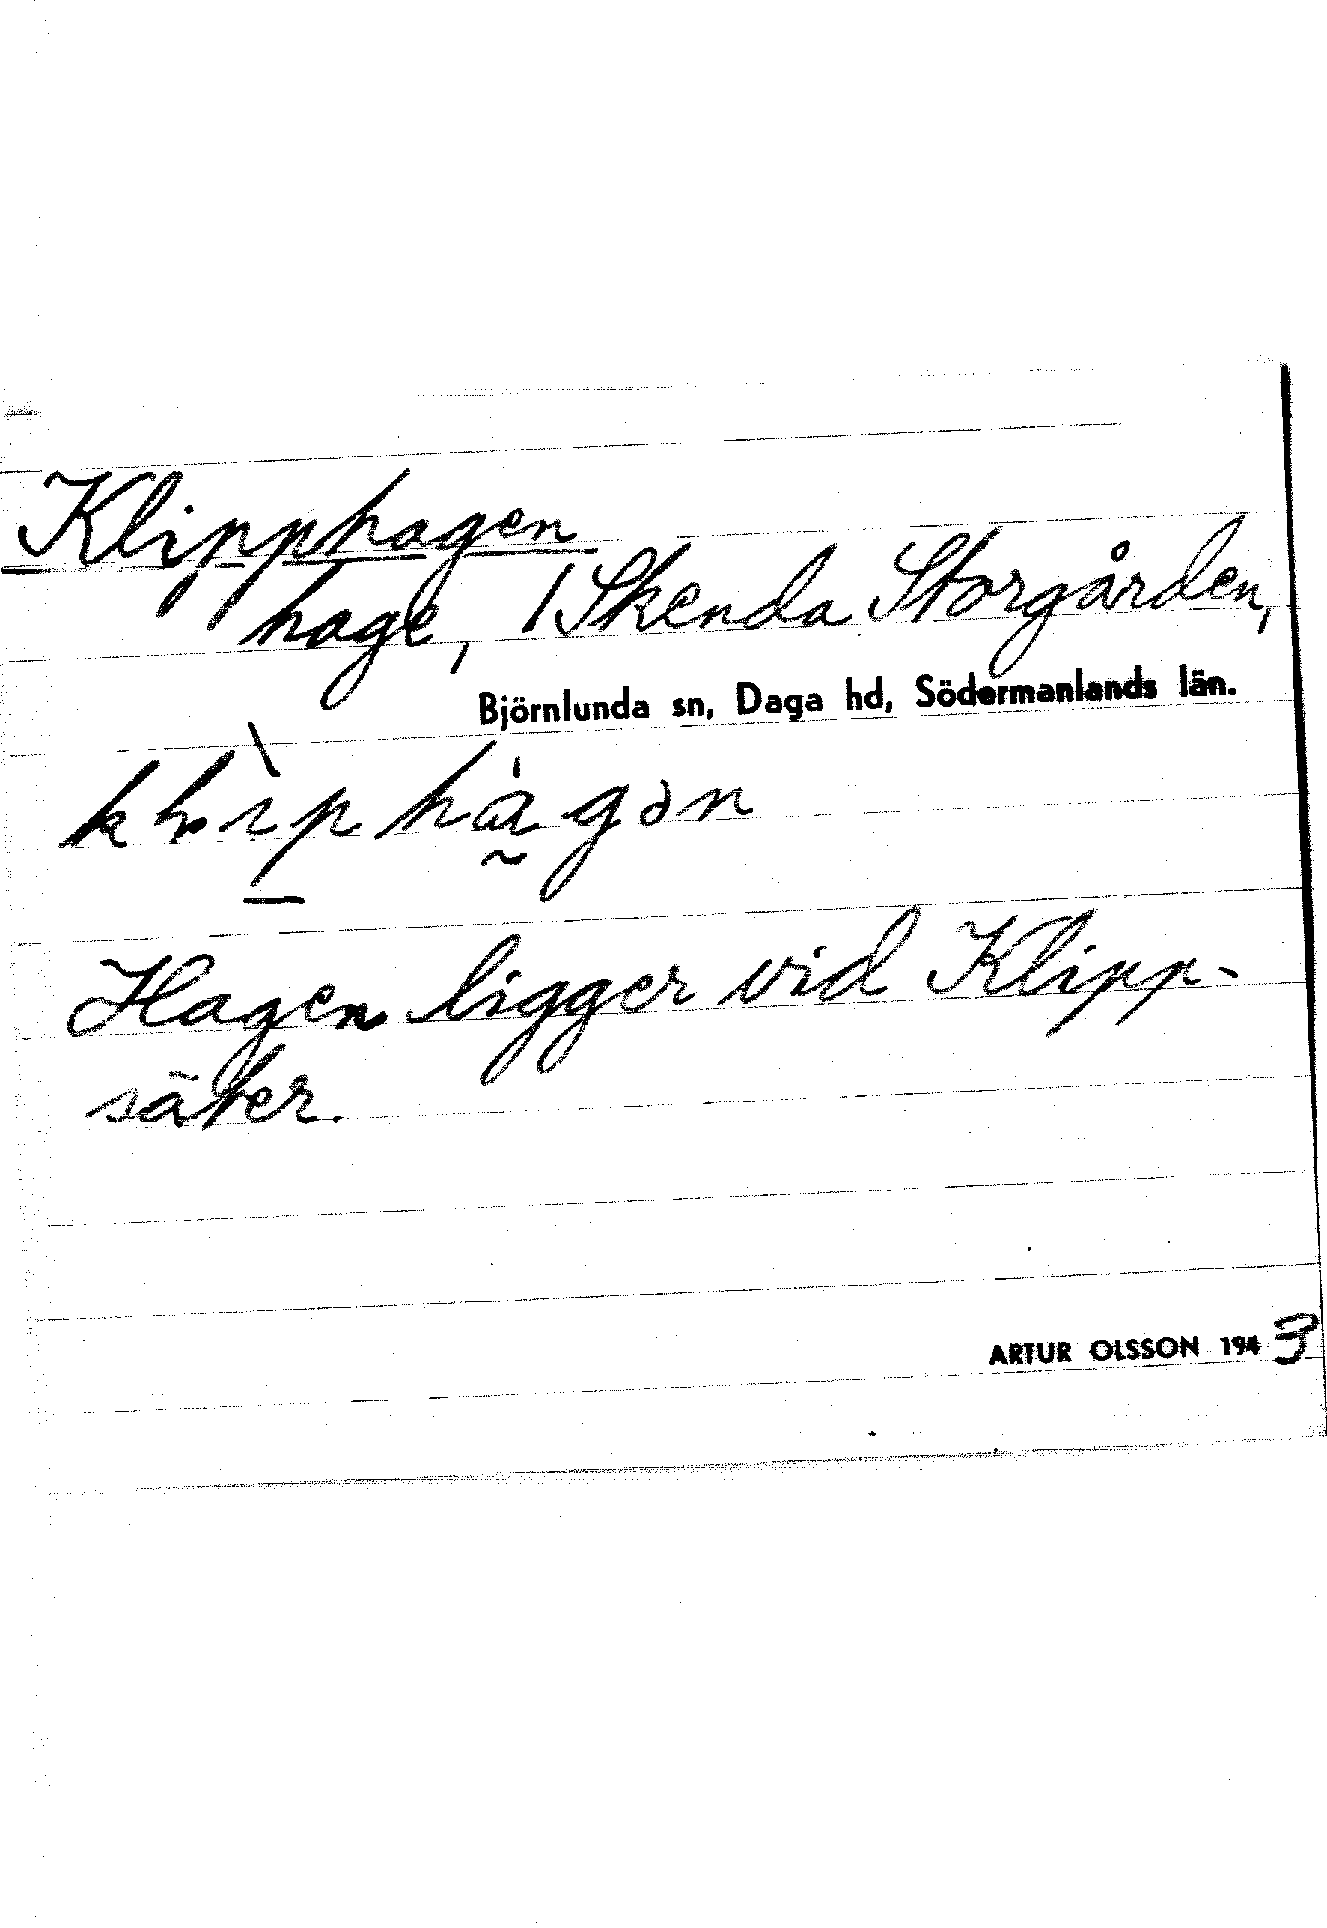 Klipphagen
hage, 1 Skenda Storgården,
Björnlunda sn, Daga hd, Södermanlands län.
Hagen ligger vid Klipp-
säter.
ARTUR OLSSON 1943